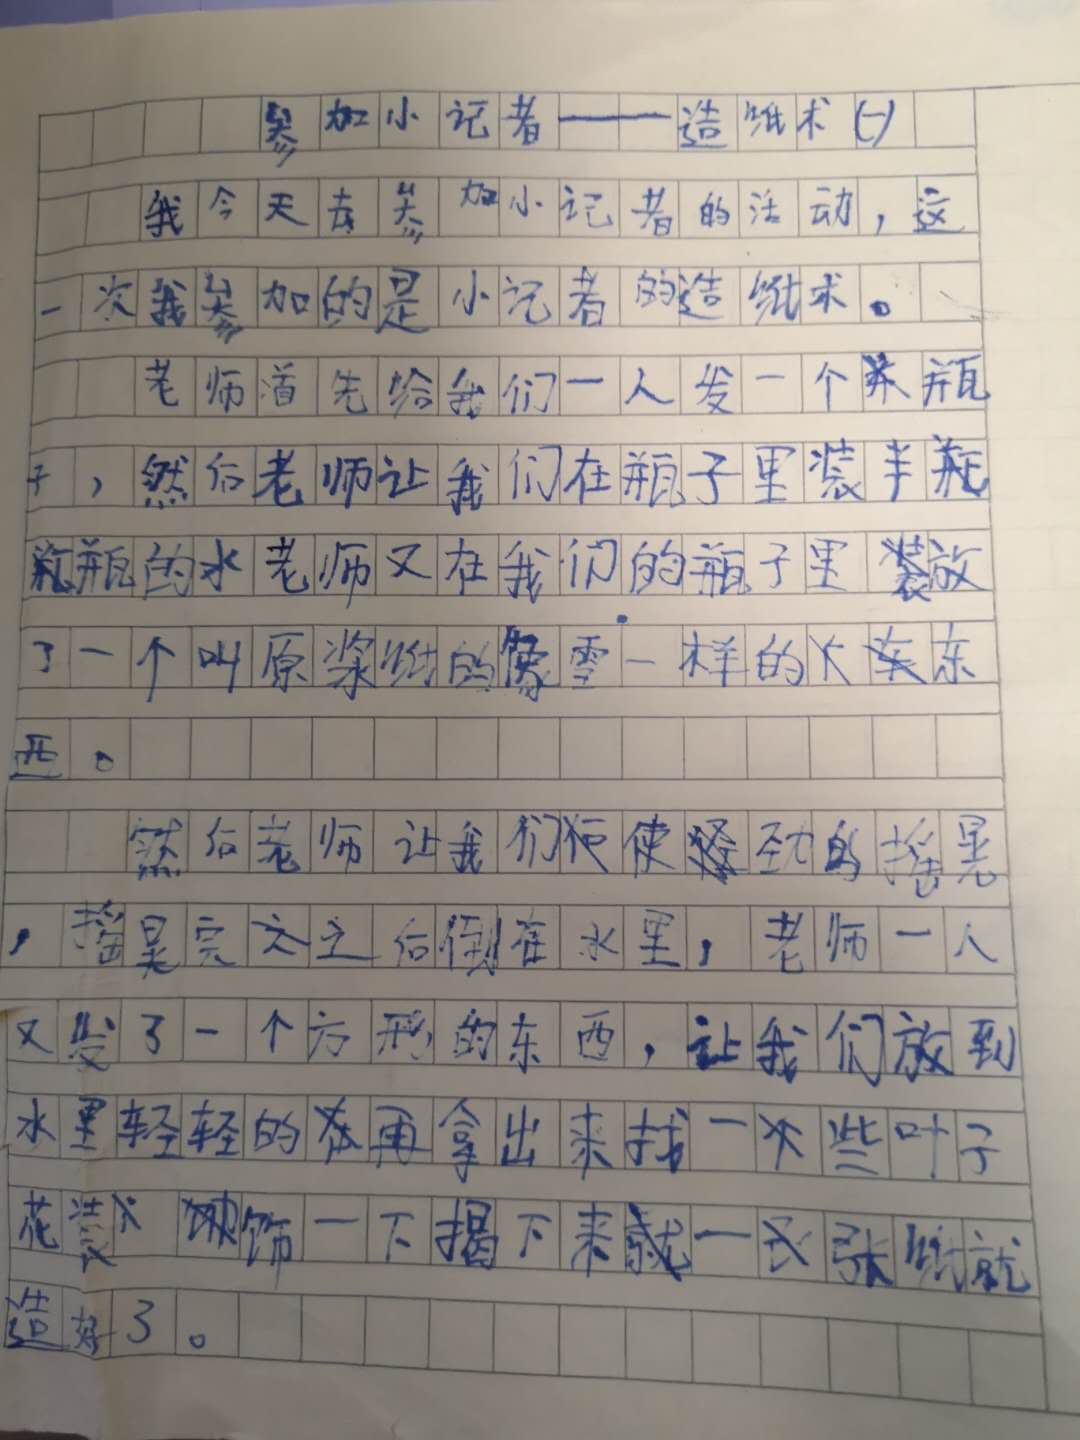 参加小记者——造纸术(一)
我今天去参加小记者的活动，这
一次我参加的是小记者的造纸术。
老师首先给我们一人发一个瓶
子，然后老师让我们在瓶子里装半瓶
瓶的水老师又在我们的瓶子里放
了一个叫原浆纸的像雪一样的东
西。
然后老师让我们使劲的摇晃
，摇晃完之后倒在水里，老师一人
又发了一个方形的东西，让我们放到
水里轻轻的再拿出来找一些叶子
花装饰一下揭下来一张纸就
造好了。